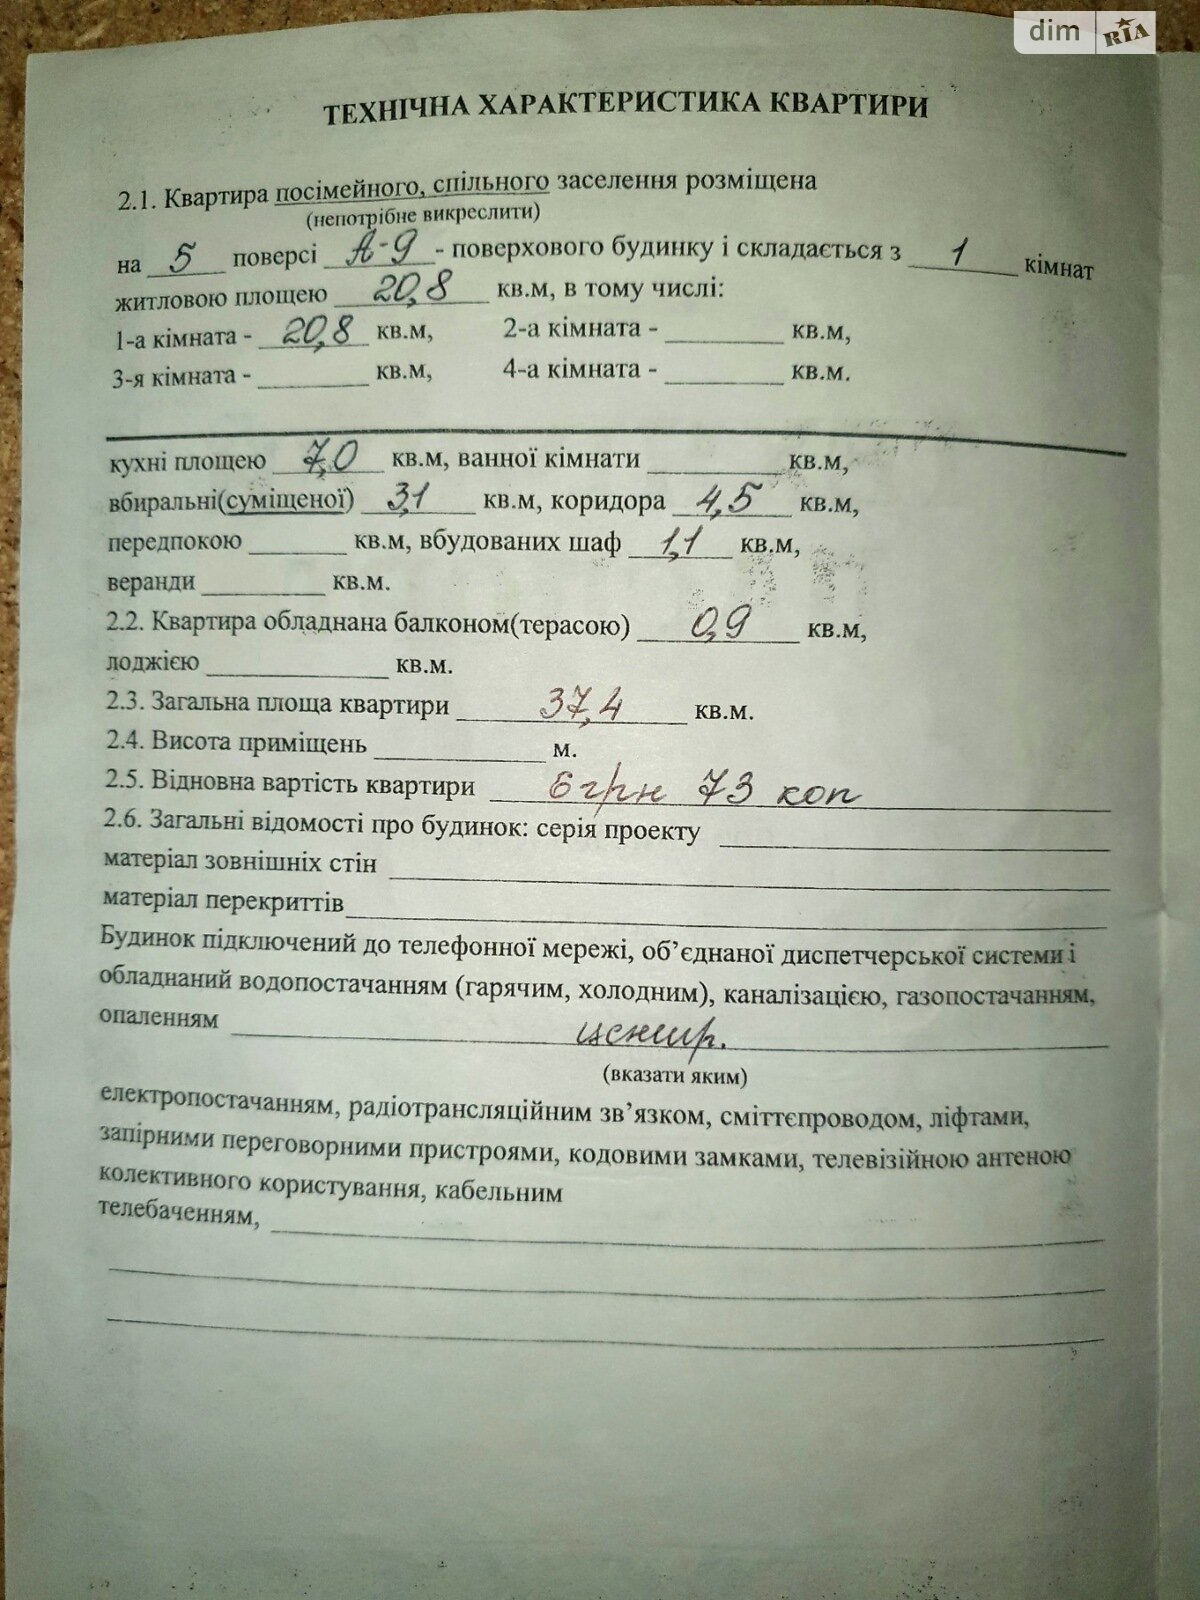 dim RIA
ТЕХНІЧНА ХАРАКТЕРИСТИКА КВАРТИРИ
2.1. Квартира посімейного, спільного заселення розміщена
(непотрібне викреслити)
на 5 поверсі А-9 - поверхового будинку і складається з 1 кімнат
житловою площею 20,8 кв.м, в тому числі:
1-а кімната - 20,8 кв.м, 2-а кімната - кв.м,
3-я кімната - кв.м, 4-а кімната - кв.м.
кухні площею 7,0 кв.м, ванної кімнати кв.м,
вбиральні(суміщеної) 3,1 кв.м, коридора 4,5 кв.м,
передпокою кв.м, вбудованих шаф 1,1 кв.м,
веранди кв.м.
2.2. Квартира обладнана балконом(терасою) 0,9 кв.м,
лоджією кв.м.
2.3. Загальна площа квартири 37,4 кв.м.
2.4. Висота приміщень м.
2.5. Відновна вартість квартири 6 грн 73 коп
2.6. Загальні відомості про будинок: серія проекту
матеріал зовнішніх стін
матеріал перекриттів
Будинок підключений до телефонної мережі, об’єднаної диспетчерської системи і
обладнаний водопостачанням (гарячим, холодним), каналізацією, газопостачанням,
опаленням центр.
(вказати яким)
електропостачанням, радіотрансляційним зв’язком, сміттєпроводом, ліфтами,
запірними переговорними пристроями, кодовими замками, телевізійною антеною
колективного користування, кабельним
телебаченням,